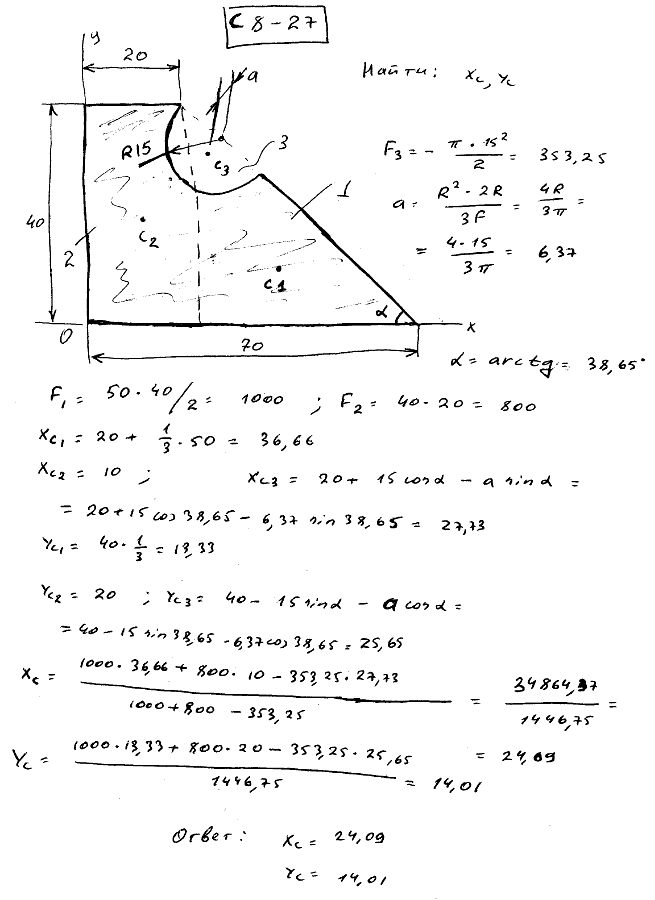 C 8-27
y
20
a
Найти: xc, yc
R15
C3
3
F3 = - π · 15² / 2 = 353,25
1
a = R² · 2R / 3F = 4R / 3π =
40
C2
2
C1
= 4·15 / 3π = 6,37
α
0
x
70
α = arctg = 38,65°
F1 = 50·40/2 = 1000 ; F2 = 40·20 = 800
Xc1 = 20 + 1/3 · 50 = 36,66
Xc2 = 10 ; Xc3 = 20 + 15 cosα - a sinα =
= 20 + 15 cos 38,65 - 6,37 sin 38,65 = 27,73
Yc1 = 40 · 1/3 = 13,33
Yc2 = 20 ; Yc3 = 40 - 15 sinα - a cosα =
= 40 - 15 sin 38,65 - 6,37 cos 38,65 = 25,65
Xc = 1000·36,66 + 800·10 - 353,25·27,73 / 1000 + 800 - 353,25 = 34864,37 / 1446,75 =
= 24,09
Yc = 1000·13,33 + 800·20 - 353,25·25,65 / 1446,75 = 14,01
Ответ: Xc = 24,09
Yc = 14,01